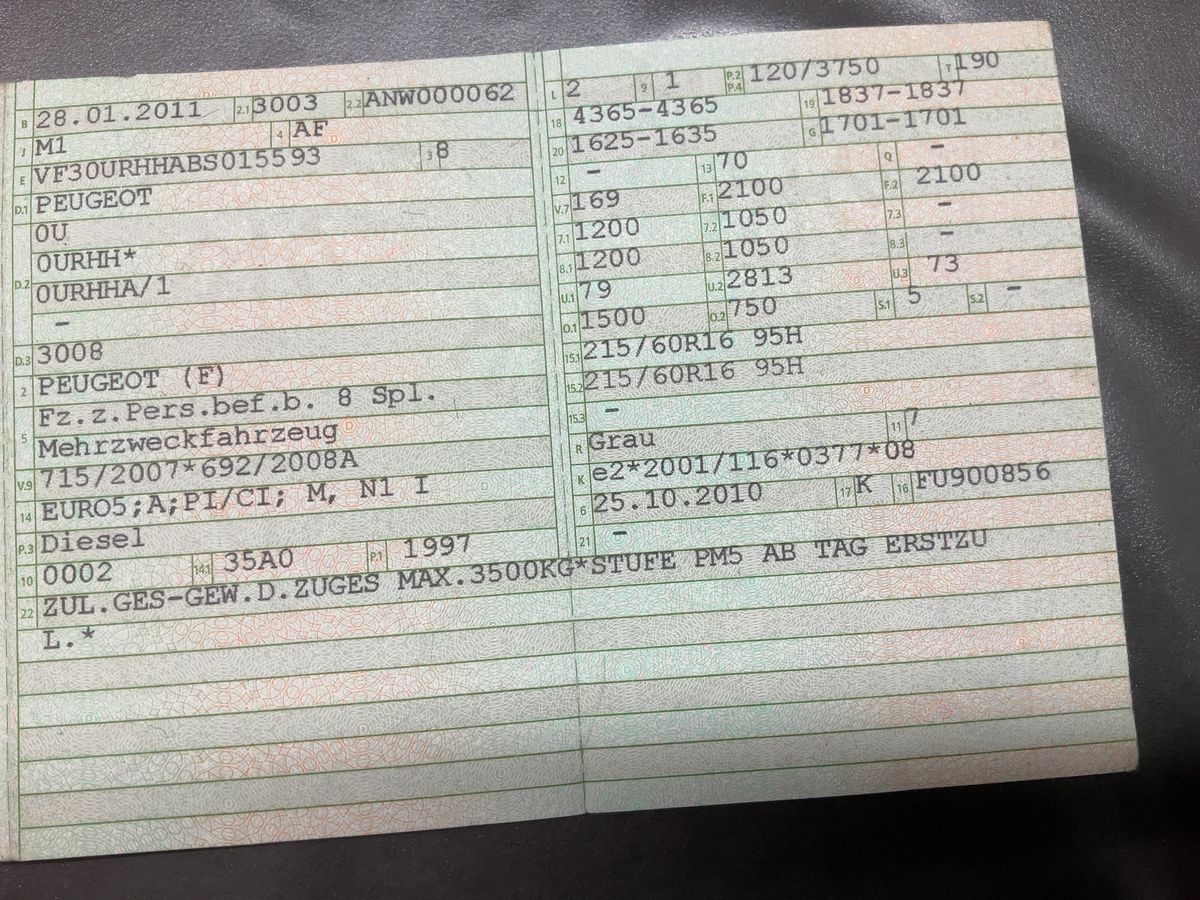 B 28.01.2011 2.1 3003 2.2 ANW000062
J M1 4 AF
E VF30URHHABS015593 3 8
D.1 PEUGEOT
0U
D.2 0URHH*
0URHHA/1
-
D.3 3008
2 PEUGEOT (F)
5 Fz.z.Pers.bef.b. 8 Spl.
Mehrzweckfahrzeug
V.9 715/2007*692/2008A
14 EURO5;A;PI/CI; M, N1 I
P.3 Diesel
10 0002 14.1 35A0 P.1 1997
L 2 9 1 P.2 P.4 120/3750 T 190
18 4365-4365 19 1837-1837
20 1625-1635 G 1701-1701
12 - 13 70 Q -
V.7 169 F.1 2100 F.2 2100
7.1 1200 7.2 1050 7.3 -
8.1 1200 8.2 1050 8.3 -
U.1 79 U.2 2813 U.3 73
O.1 1500 O.2 750 S.1 5 S.2 -
15.1 215/60R16 95H
15.2 215/60R16 95H
15.3 -
R Grau 11 7
K e2*2001/116*0377*08
6 25.10.2010 17 K 16 FU900856
21 -
22 ZUL.GES-GEW.D.ZUGES MAX.3500KG*STUFE PM5 AB TAG ERSTZU
L.*